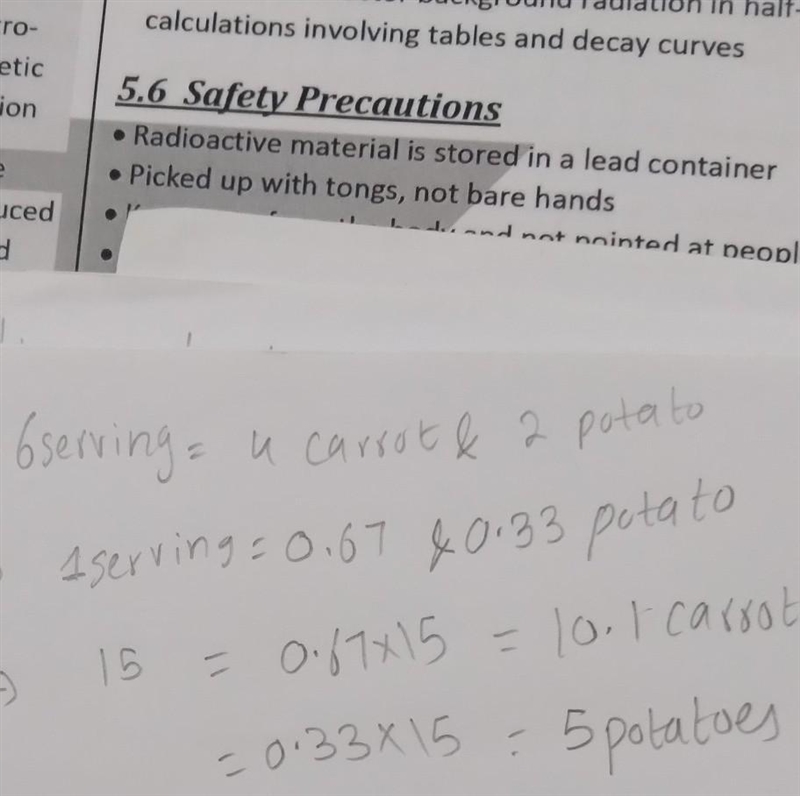 background radiation in half-
calculations involving tables and decay curves
5.6 Safety Precautions
• Radioactive material is stored in a lead container
• Picked up with tongs, not bare hands
• body and not pointed at peopl
•
ro-
etic
ion
e
uced
d
6serving = 4 carrot & 2 potato
1serving = 0.67 & 0.33 potato
15 = 0.67x15 = 10.1 carrot
= 0.33x15 = 5potatoes